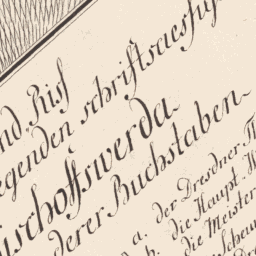 nd Riss
egenden schriftsaessig
ischoffswerda
derer Buchstaben
a. der Dresdner Th
b. die Haupt W
die Meister